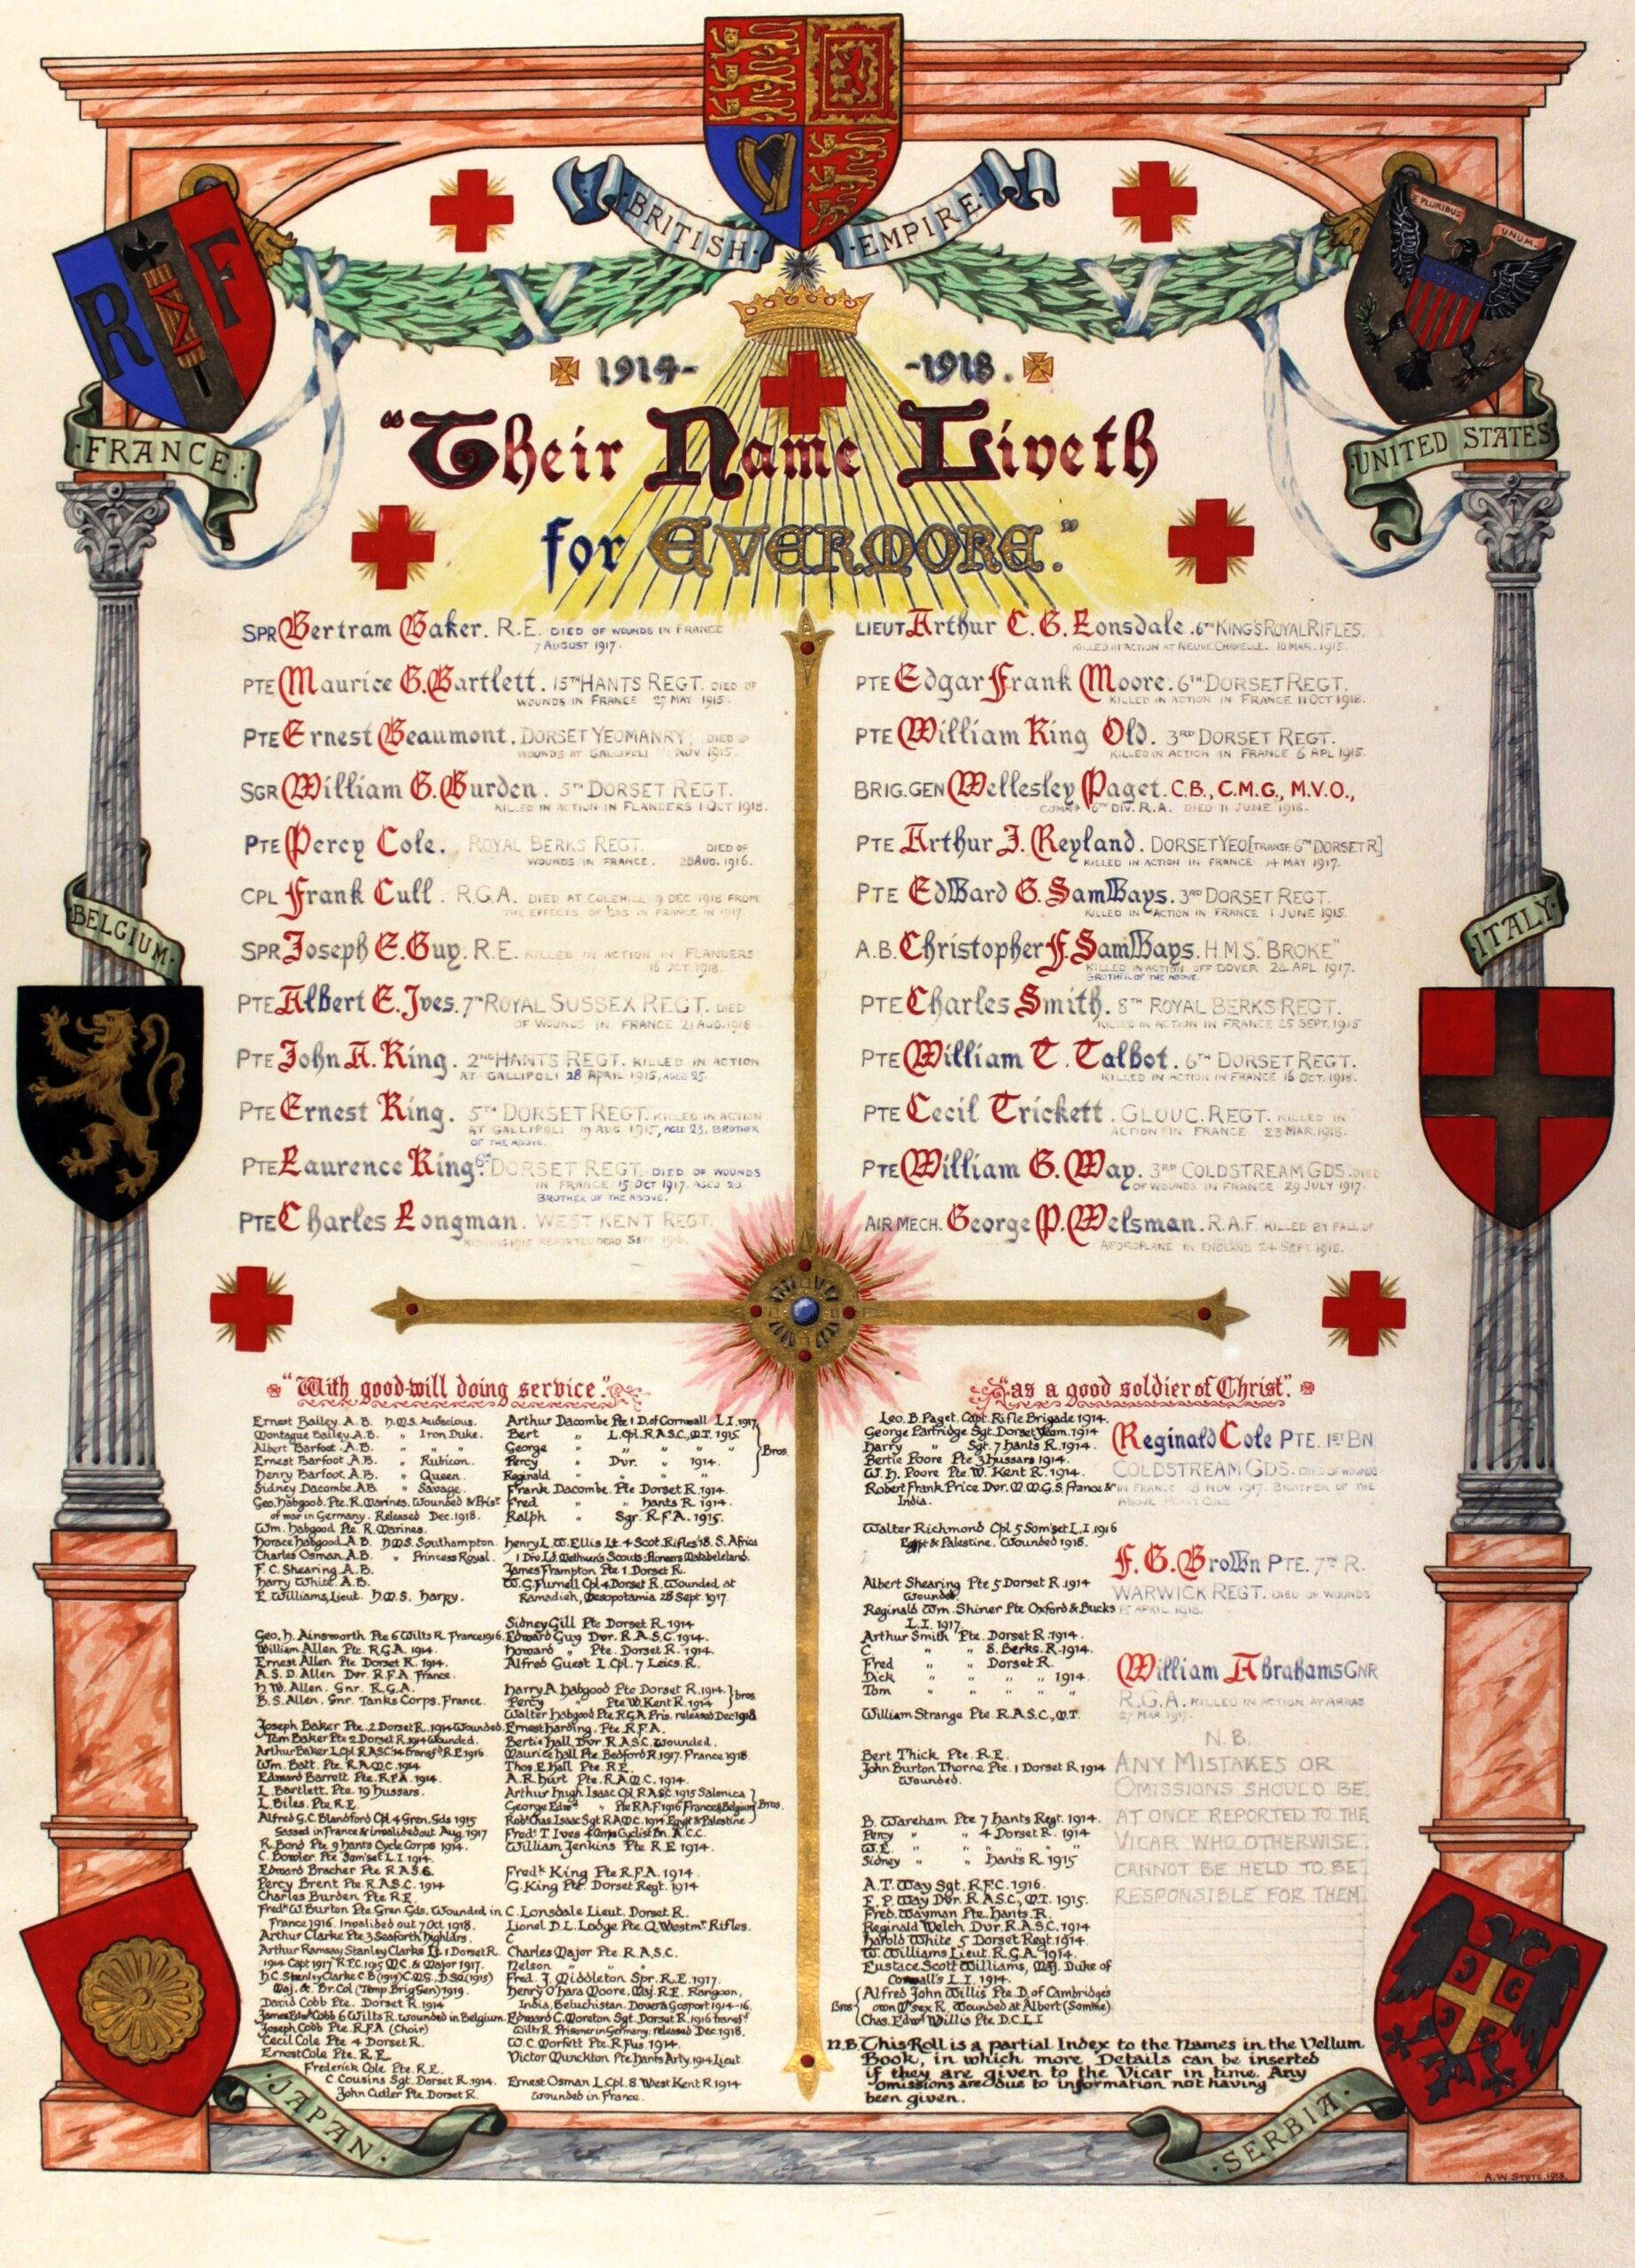 BRITISH EMPIRE
R F
E PLURIBUS UNUM.
FRANCE
UNITED STATES
1914- -1918.
"Their Name Liveth
for EVERMORE."
BELGIUM
ITALY
SPR Bertram Baker. R.E. DIED OF WOUNDS IN FRANCE
7 AUGUST 1917.
PTE Maurice G. Bartlett. 15TH HANTS REGT. DIED OF
WOUNDS IN FRANCE 27 MAY 1915.
PTE Ernest Beaumont. DORSET YEOMANRY; DIED OF
WOUNDS AT GALLIPOLI NOV. 1915.
SGR William G. Burden. 5TH DORSET REGT.
KILLED IN ACTION IN FLANDERS 1 OCT 1918.
PTE Percy Cole. ROYAL BERKS REGT. DIED OF
WOUNDS IN FRANCE. 20 AUG. 1916.
CPL Frank Cull. R.G.A. DIED AT COLEHILL 9 DEC 1918 FROM
THE EFFECTS OF GAS IN FRANCE IN 1917.
SPR Joseph E. Guy. R.E. KILLED IN ACTION IN FLANDERS
16 OCT. 1918.
PTE Albert E. Ives. 7TH ROYAL SUSSEX REGT. DIED
OF WOUNDS IN FRANCE 21 AUG. 1918
PTE John A. King. 2ND HANTS REGT. KILLED IN ACTION
AT GALLIPOLI 28 APRIL 1915, AGED 25.
PTE Ernest King. 5TH DORSET REGT. KILLED IN ACTION
AT GALLIPOLI 19 AUG 1915, AGED 23. BROTHER
OF THE ABOVE.
PTE Laurence King. 6TH DORSET REGT. DIED OF WOUNDS
IN FRANCE 15 OCT 1917. AGED 20.
BROTHER OF THE ABOVE.
PTE Charles Longman. WEST KENT REGT.
MISSING 1915 REPORTED DEAD SEPT
LIEUT Arthur C. G. Lonsdale. 6TH KING'S ROYAL RIFLES.
KILLED IN ACTION AT NEUVE CHAPELLE. 10 MAR. 1915.
PTE Edgar Frank Moore. 6TH DORSET REGT.
KILLED IN ACTION IN FRANCE 11 OCT 1918.
PTE William King Old. 3RD DORSET REGT.
KILLED IN ACTION IN FRANCE 6 APL 1915.
BRIG. GEN Wellesley Paget. C.B., C.M.G., M.V.O.,
COMMG 6TH DIV. R.A. DIED 11 JUNE 1918.
PTE Arthur J. Reyland. DORSET YEO [TRANSF. 6TH DORSET R]
KILLED IN ACTION IN FRANCE 14 MAY 1917.
PTE Edward G. Samways. 3RD DORSET REGT.
KILLED IN ACTION IN FRANCE 1 JUNE 1915.
A.B. Christopher F. Samways. H.M.S. "BROKE"
KILLED IN ACTION OFF DOVER 24 APL 1917.
BROTHER OF THE ABOVE.
PTE Charles Smith. 8TH ROYAL BERKS REGT.
KILLED IN ACTION IN FRANCE 25 SEPT. 1915
PTE William T. Talbot. 6TH DORSET REGT.
KILLED IN ACTION IN FRANCE 16 OCT. 1918.
PTE Cecil Trickett. GLOUC. REGT. KILLED IN
ACTION IN FRANCE 23 MAR. 1918.
PTE William G. Way. 3RD COLDSTREAM GDS. DIED
OF WOUNDS IN FRANCE 29 JULY 1917.
AIR MECH. George P. Welsman. R.A.F. KILLED BY FALL OF
AEROPLANE IN ENGLAND 24 SEPT 1918.
"With good-will doing service."
Ernest Bailey. A.B. H.M.S. Audacious.
Montague Bailey. A.B. " Iron Duke.
Albert Barfoot. A.B. " " "
Ernest Barfoot. A.B. " Rubicon.
Henry Barfoot. A.B. " Queen.
Sidney Dacombe. A.B. " Savage.
Geo. Habgood. Pte. R. Marines. Wounded & Prisr
of war in Germany. Released Dec. 1918.
Wm. Habgood Pte. R. Marines.
Horace Habgood. A.B. H.M.S. Southampton.
Charles Osman. A.B. " Princess Royal.
F. C. Shearing. A.B.
Harry White. A.B.
E Williams, Lieut. H.M.S. Harpy.
Geo. H. Ainsworth Pte 6 Wilts R. France 1916.
William Allen Pte. R.G.A. 1914.
Ernest Allen Pte Dorset R. 1914.
A. S. D. Allen Dvr. R.F.A. France.
H. W. Allen. Gnr. R.G.A.
B. S. Allen. Gnr. Tanks Corps. France.
Joseph Baker Pte. 2 Dorset R. 1914 Wounded.
Tom Baker Pte 2 Dorset R. 1914 Wounded.
Arthur Baker L. Cpl RASC '14 transfd R.E 1916.
Wm. Batt. Pte. R.A.M.C. 1914
Edward Barrett Pte. R.F.A. 1914.
L. Bartlett. Pte. 19 Hussars.
L. Biles. Pte R.E.
Alfred G. C. Blandford Cpl 4 Gren. Gds 1915
Gassed in France & invalided out Aug. 1917
R. Bond Pte. 9 Hants Cycle Corps 1914.
C. Bowler. Pte Som'set L.I. 1914.
Edward Bracher Pte R.A.S.C.
Percy Brent Pte R.A.S.C. 1914
Charles Burden Pte R.E.
Fredk W. Burton Pte Gren. Gds. Wounded in
France 1916. Invalided out 7 Oct 1918.
Arthur Clarke Pte 3 Seaforth Highldrs.
Arthur Ramsay Stanley Clarke Lt. 1 Dorset R.
1914 Capt 1917 R.F.C. 1915 M.C. & Major 1917.
H.C. Stanley Clarke C.B. (1919) C.M.G., D.S.O. (1915)
Maj. & Br. Col (Temp. Brig Gen) 1919.
David Cobb Pte. Dorset R. 1914
James Edwd Cobb 6 Wilts R. Wounded in Belgium.
Joseph Cobb Pte. R.F.A (Choir)
Cecil Cole Pte 4 Dorset R.
Ernest Cole Pte. R.E.
Frederick Cole Pte. R.E.
C. Cousins Sgt. Dorset R. 1914.
John Cutler Pte. Dorset R.
Arthur Dacombe Pte 1 D. of Cornwall L.I. 1917
Bert " L. Cpl. R.A.S.C., M.T. 1915.
George " " " " "
Percy " Dvr. " 1914.
Reginald " " " "
Bros.
Frank Dacombe. Pte Dorset R. 1914.
Fred " " Hants R. 1914.
Ralph " Sgr. R.F.A. 1915.
Henry L. W. Ellis Lt. 4 Scot. Rifles '18. S. Africa
1 Div. Ld. Methuen's Scouts: Pioneers Matabeleland.
James Frampton Pte 1 Dorset R.
W. G. Furnell Cpl 4 Dorset R. Wounded at
Ramadieh, Mesopotamia 28 Sept. 1917.
Sidney Gill Pte Dorset R. 1914
Edward Guy Dvr. R.A.S.C. 1914.
Howard " Pte. Dorset R. 1914.
Alfred Guest L Cpl. 7 Leics. R.
Harry A. Habgood Pte Dorset R. 1914.
Percy " Pte W. Kent R. 1914
bros
Walter Habgood Pte R.G.A Pris. released Dec 1918
Ernest Harding. Pte. R.F.A.
Bertie Hall Dvr. R.A.S.C. Wounded.
Maurice Hall Pte. Bedford R. 1917. France 1918.
Thos. E. Hall Pte. R.E.
A. R. Hurt Pte. R.A.M.C. 1914.
Arthur Hugh Isaac Cpl RASC. 1915 Salonica
George Edwd " Pte R.A.F. 1916 France & Belgium
Robt Chas. Isaac Sgt R.A.M.C. 1914 Egypt & Palestine
Bros.
Fredk T. Ives 4 Corps Cyclist Bn. A.C.C.
William Jenkins Pte R.E 1914.
Fredk King Pte R.F.A. 1914.
G. King Pte. Dorset Regt. 1914
C. Lonsdale Lieut. Dorset R.
Lionel D. L. Lodge Pte Q. Westmr Rifles.
C
Charles Major Pte R.A.S.C.
Nelson " " "
Fred. J. Middleton Spr. R.E. 1917.
Henry O'hara Moore, Maj. R.E. Rangoon,
India, Beluchistan. Dover & Gosport 1914-16.
Edward C. Moreton Sgt. Dorset R. 1916 transfd
Wilts R. Prisoner in Germany: released Dec. 1918.
W.C. Morfett Pte R. Fus. 1914.
Victor Munckton Pte Hants Arty. 1914 Lieut.
Ernest Osman L Cpl. 8. West Kent R 1914
Wounded in France.
"as a good soldier of Christ".
Leo. B. Paget, Capt. Rifle Brigade 1914.
George Partridge Sgt. Dorset Yeom. 1914
Harry " Sgt. 7 Hants R. 1914.
Bertie Poore Pte 3 Hussars 1914.
W. H. Poore Pte. W. Kent R. 1914.
Robert Frank Price Dvr. M.M.G.S. France &
India.
Walter Richmond Cpl 5 Som'set L.I. 1916
Egypt & Palestine. Wounded 1918.
Albert Shearing Pte 5 Dorset R. 1914
Wounded.
Reginald Wm. Shiner Pte Oxford & Bucks
L.I. 1917.
Arthur Smith Pte. Dorset R. 1914.
C " " S. Berks. R. 1914.
Fred " " Dorset R.
Dick " " " " 1914.
Tom " " " " "
William Strange Pte. R.A.S.C., M.T.
Bert Thick Pte. R.E.
John Burton Thorne Pte. 1 Dorset R. 1914
Wounded.
B. Wareham Pte 7 Hants Regt. 1914.
Percy " " 4 Dorset R. 1914
W.E. " " " " "
Sidney " " Hants R. 1915
A. T. Way Sgt. R.F.C. 1916.
E. P. Way Dvr. R.A.S.C., M.T. 1915.
Fred. Wayman Pte. Hants. R.
Reginald Welch Dvr. R.A.S.C. 1914
Harold White 5 Dorset Regt. 1914.
W. Williams Lieut. R.G.A. 1914.
Eustace Scott Williams, Maj. Duke of
Cornwall's L.I. 1914.
Bros
Alfred John Willis Pte. D. of Cambridge's
own M'sex R. Wounded at Albert (Somme)
Chas. Edwd Willis Pte D.C.L.I
N.B. This Roll is a partial Index to the Names in the Vellum
Book, in which more Details can be inserted
if they are given to the Vicar in time. Any
omissions are due to information not having
been given.
Reginald Cole PTE. 1ST BN
COLDSTREAM GDS. DIED OF WOUNDS
IN FRANCE 28 NOV. 1917. BROTHER OF THE
ABOVE PERCY COLE
F. G. Brown PTE. 7TH R.
WARWICK REGT. DIED OF WOUNDS
15 APRIL 1918.
William Abrahams GNR
R.G.A. KILLED IN ACTION AT ARRAS
27 MAR 1917.
N.B.
ANY MISTAKES OR
OMISSIONS SHOULD BE
AT ONCE REPORTED TO THE
VICAR WHO OTHERWISE
CANNOT BE HELD TO BE
RESPONSIBLE FOR THEM.
JAPAN
SERBIA
A. W. STOTE. 1918.